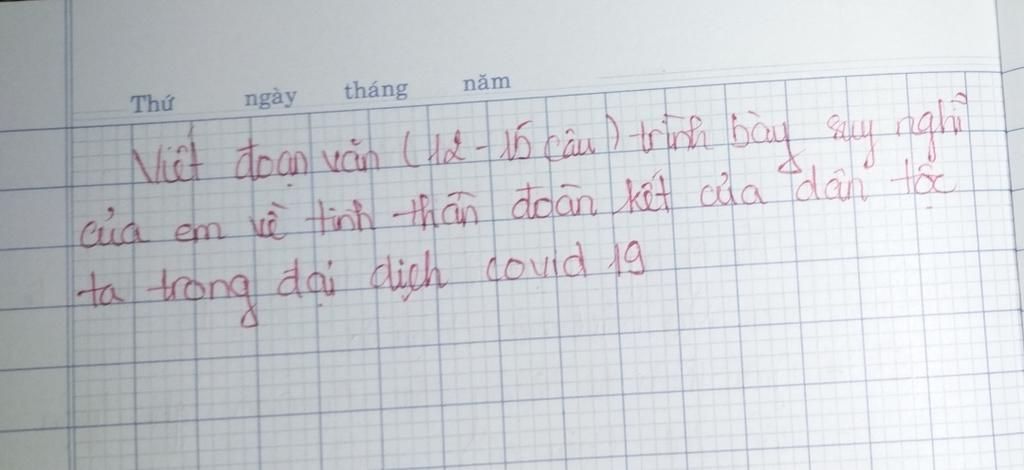 Thứ ngày tháng năm
Viết đoạn văn (12-15 câu) trình bày suy nghĩ
của em về tinh thần đoàn kết của dân tộc
ta trong đại dịch covid 19